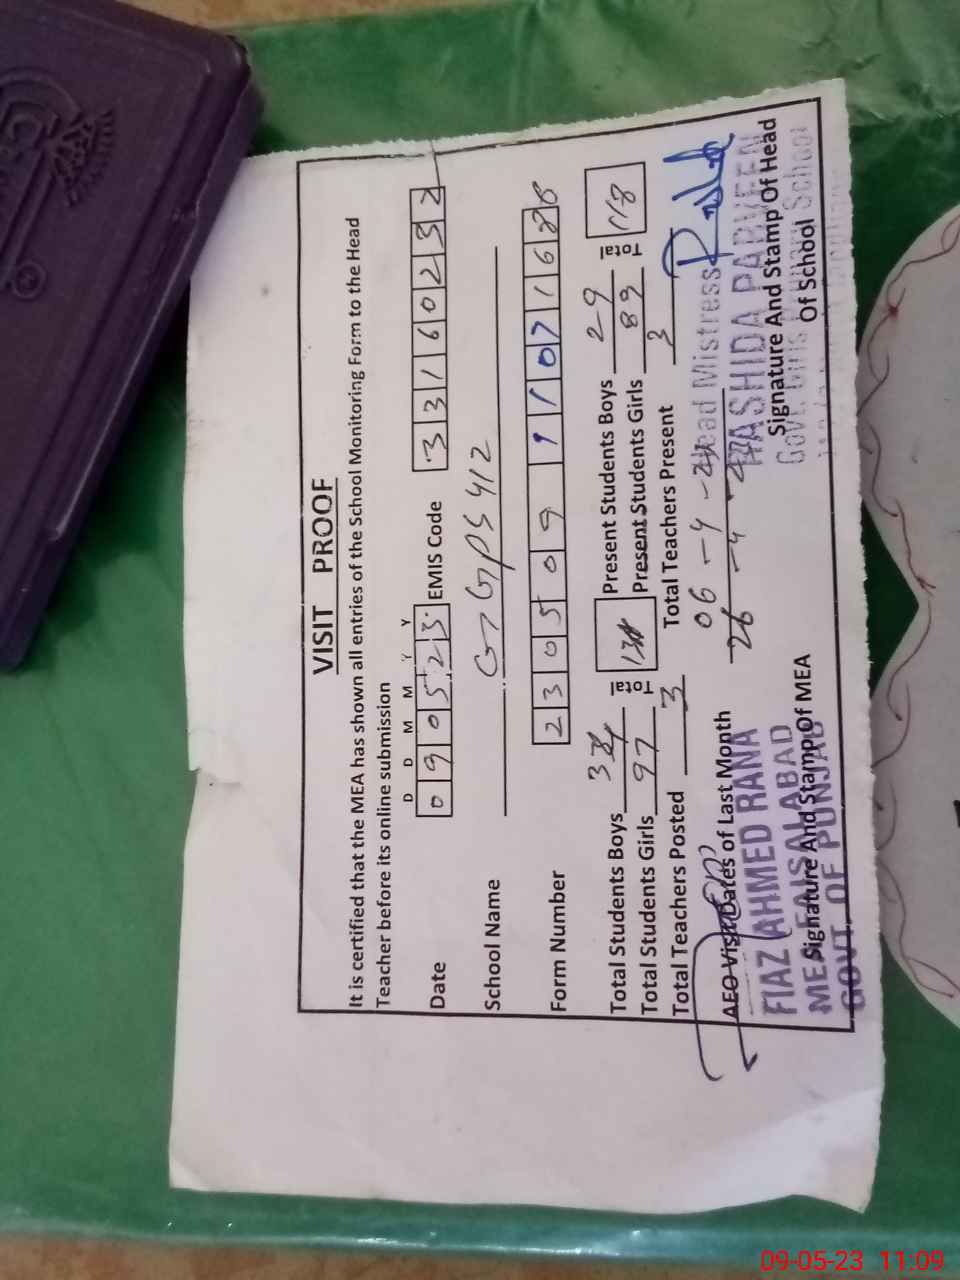 VISIT PROOF
It is certified that the MEA has shown all entries of the School Monitoring Form to the Head
Teacher before its online submission
D D M M Y Y
Date 0 9 0 5 2 3 EMIS Code 3 3 1 6 0 2 3 2
School Name GGPS 412
Form Number 2 3 0 5 0 9 9 1 1 0 7 1 6 2 8
Total Students Boys Total Present Students Boys 29 Total 118
Total Students Girls 97 Present Students Girls 89
Total Teachers Posted 3 Total Teachers Present 3
AEO Visit Dates of Last Month 06-4-
26-4-
Head Mistress
RASHIDA PARVEEN
FIAZ AHMED RANA
MEA FAISALABAD
GOVT. OF PUNJAB
Signature And Stamp Of MEA
Signature And Stamp Of Head
Of School
Govt. Girls Primary School
09-05-23 11:09